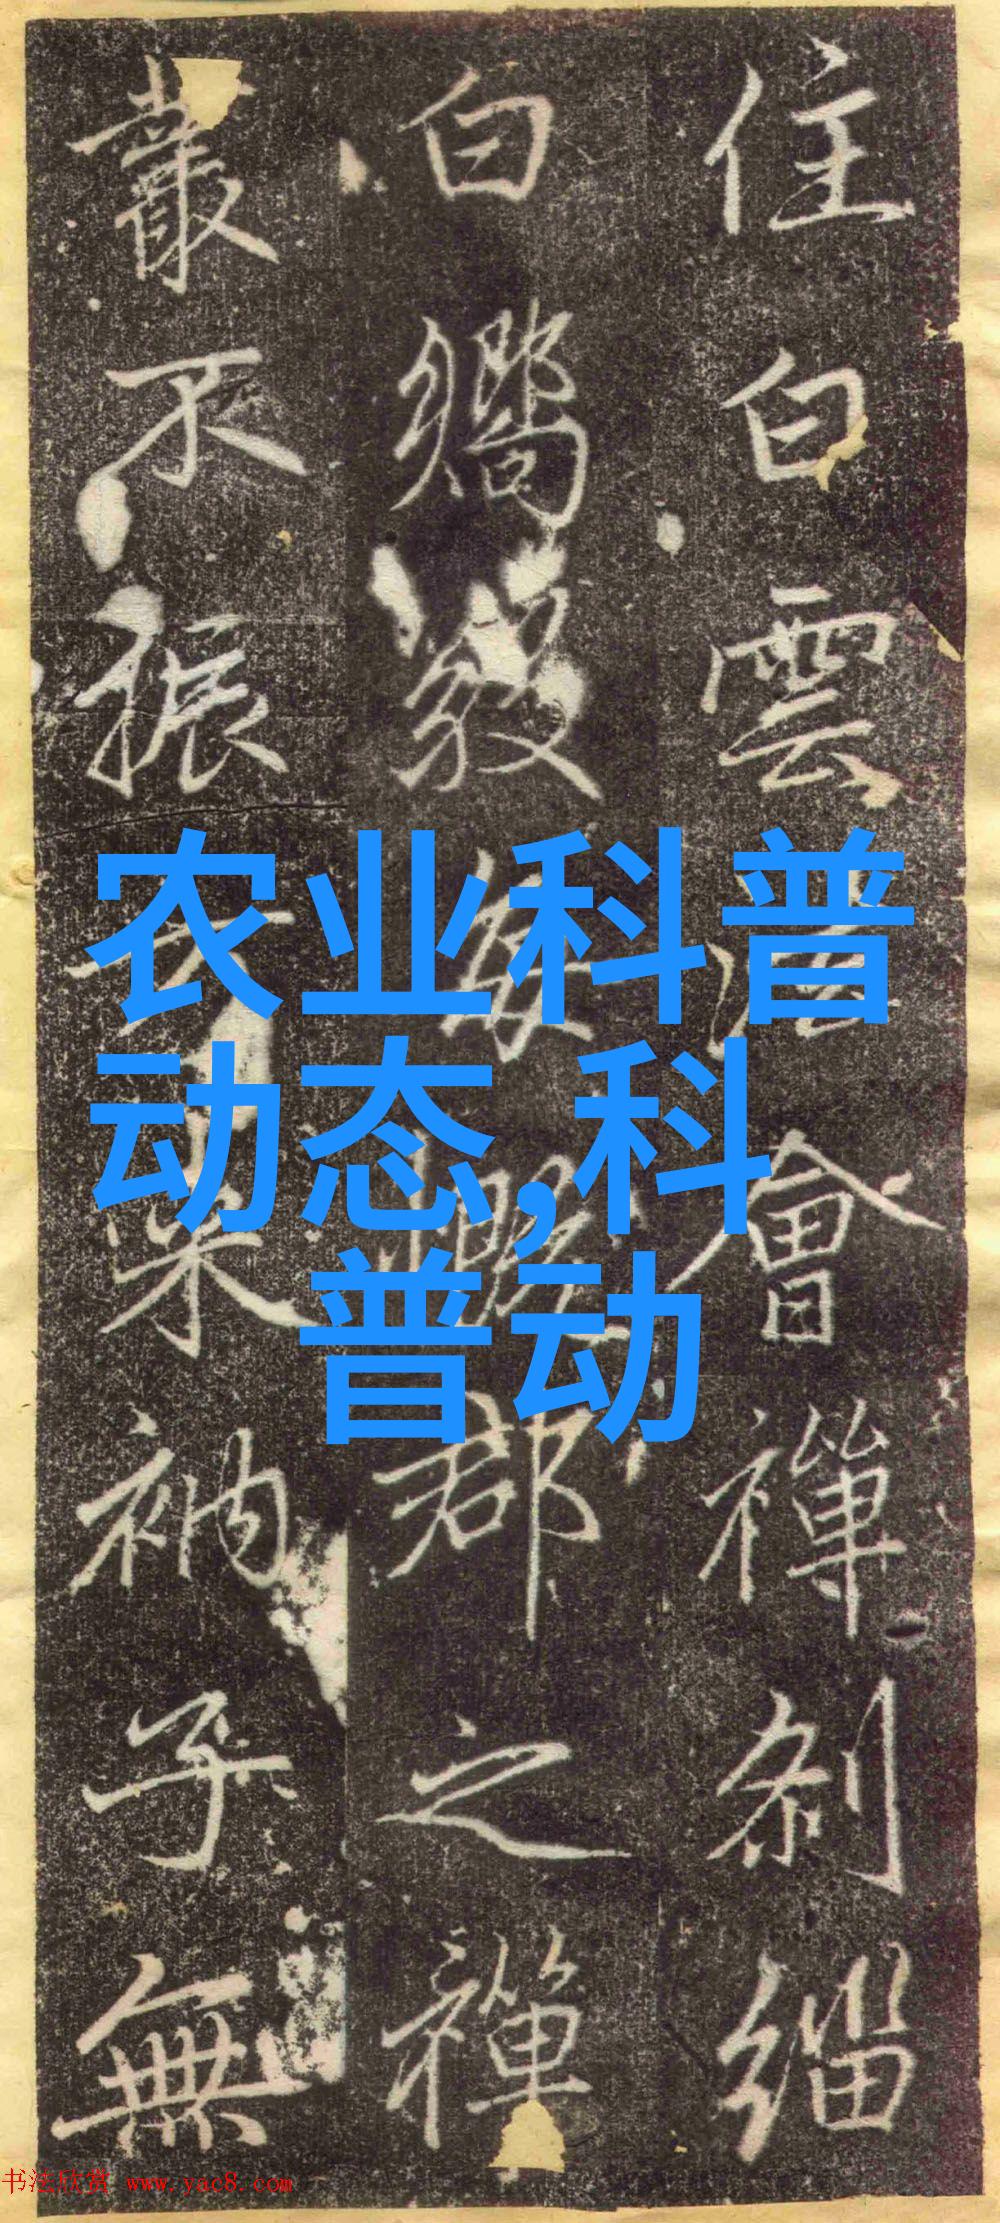 住白雲會禪刹緇
白嚮郡之禪
叢不振来衲子無
农业科普
动态,科
普动
书法欣赏 www.yac8.com